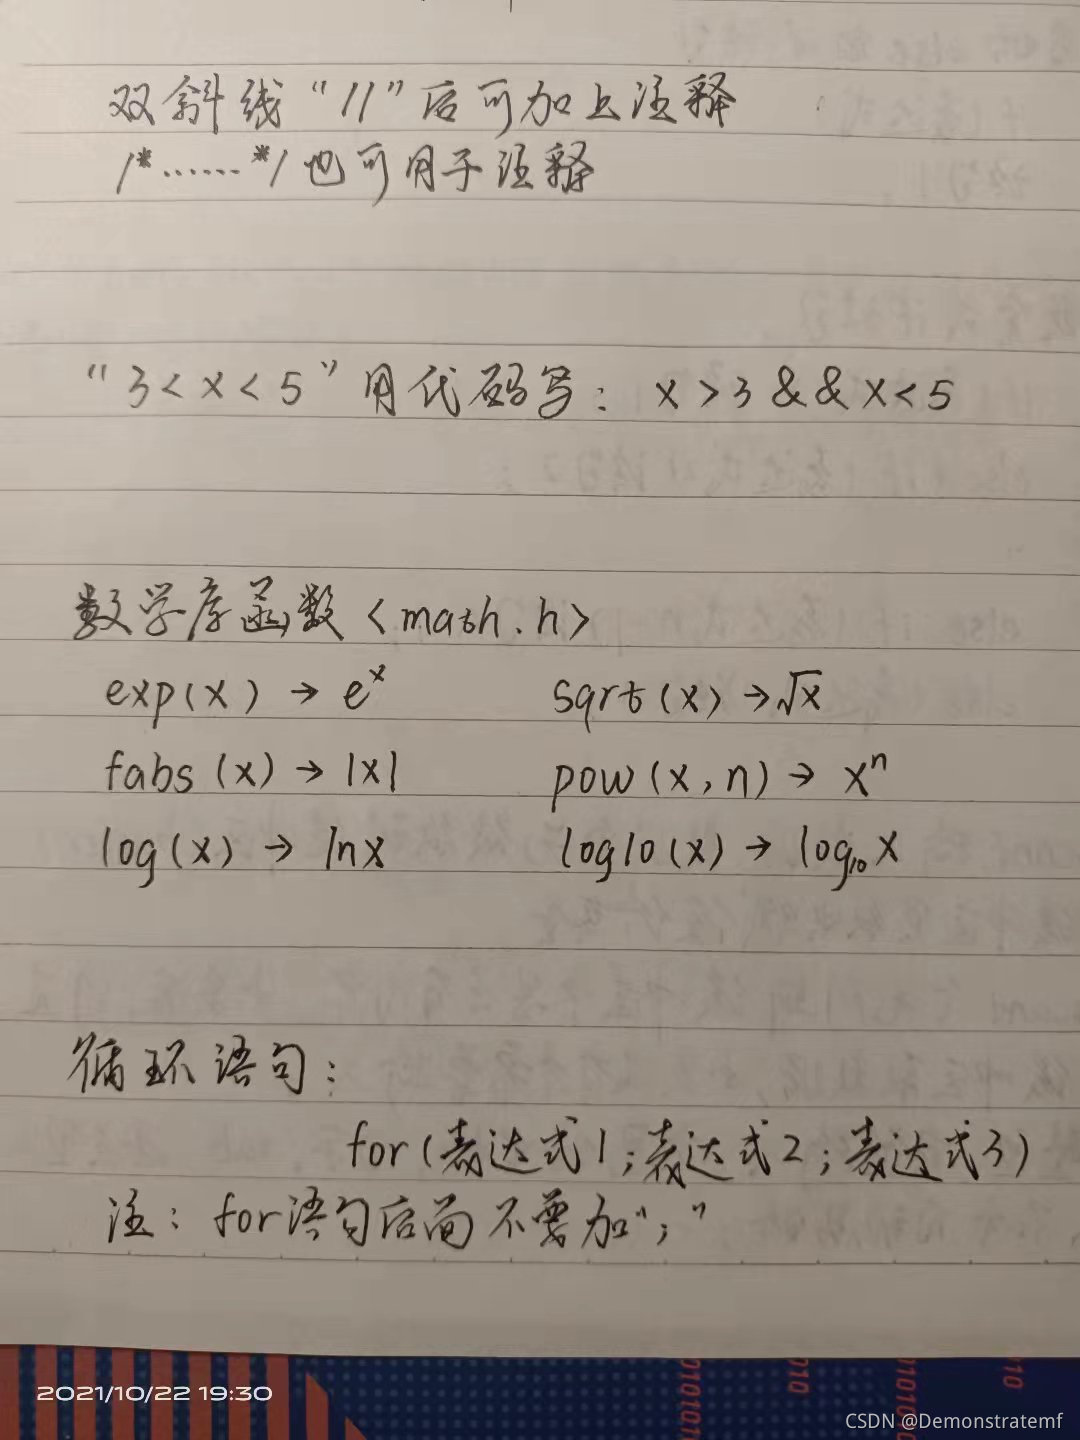 双斜线“//”后可加上注释
/*……*/也可用于注释
“3<x<5”用代码写：x>3&&x<5
数学库函数<math.h>
exp(x)→eˣ sqrt(x)→√x
fabs(x)→|x| pow(x,n)→xⁿ
log(x)→lnx log10(x)→log₁₀x
循环语句：
for(表达式1;表达式2;表达式3)
注：for语句后面不要加“;”
2021/10/22 19:30
CSDN @Demonstratemf